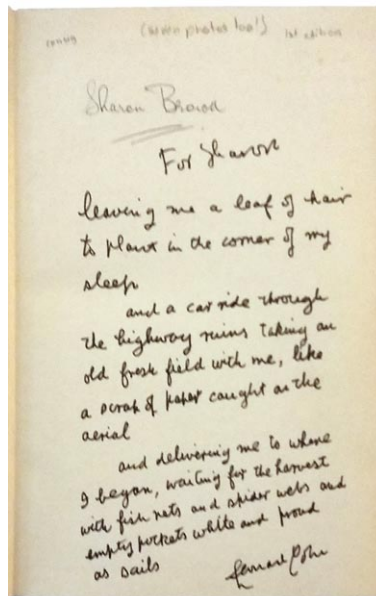 (seven photos too!)
1st edition
Sharon Brown
For Sharon
leaving me a leaf of hair
to plant in the corner of my
sleep
and a car ride through
the highway ruins taking an
old fresh field with me, like
a scrap of paper caught on the
aerial
and delivering me to where
I began, waiting for the harvest
with fish nets and spider webs and
empty pockets white and proud
as sails
Leonard Cohen